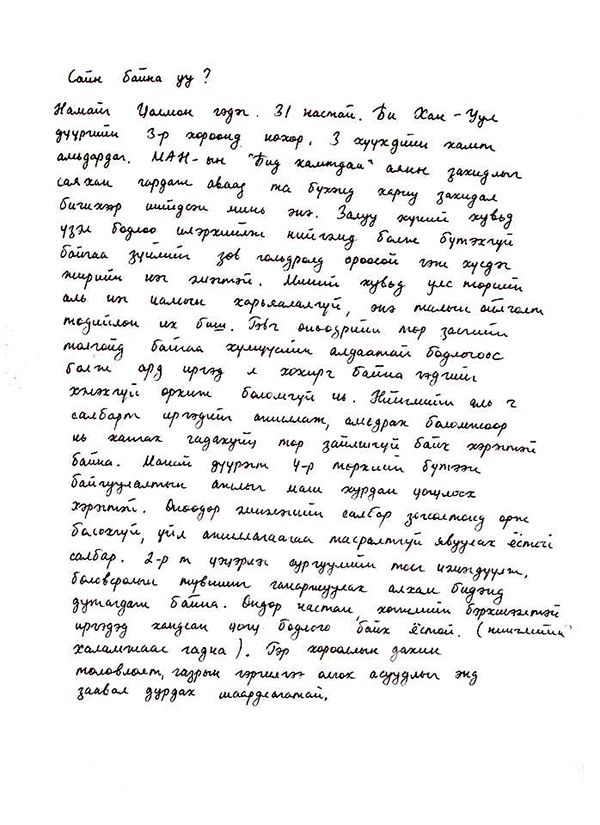 Сайн байна уу?
Намайг Цолмон гэдэг. 31 настай. Би Хан-Уул
дүүргийн 3-р хороонд нөхөр, 3 хүүхдийн хамт
амьдардаг. МАН-ын "Бид хамтдаа" аяны захидлыг
саяхан гардаж аваад та бүхэнд хариу захидал
бичихээр шийдсэн минь энэ. Залуу хүний хувьд
үзэл бодлоо илэрхийлж нийгэмд болж бүтэхгүй
байгаа зүйлийг зөв голдролд ороосой гэж хүсдэг
жирийн нэг эмэгтэй. Миний хувьд улс төрийн
аль нэг намын харьяалалгүй, энэ талын ойлголт
төдийлөн их биш. Гэвч өнөөдрийн төр засгийн
толгойд байгаа хүмүүсийн алдаатай бодлогоос
болж ард иргэд л хохирч байна гэдгийг
хэлэхгүй орхиж боломгүй нь. Нийгмийн аль ч
салбарт иргэдийн ажиллаж, амьдрах боломжоор
нь хангах гадахуйц төр зайлшгүй байх хэрэгтэй
байна. Манай дүүрэгт 4-р төрхийн бүтээн
байгуулалтын ажлыг маш хурдан цогцлоох
хэрэгтэй. Өнөөдөр эмнэлгийн салбар зогсолтонд орж
болохгүй, үйл ажиллагаагаа тасралтгүй явуулах ёстой
салбар. 2-р т цэцэрлэг сургуулийн тоог нэмэгдүүлж,
боловсролын түвшинг ганаржуулах алхам бидэнд
дутагдаж байна. Өндөр настан, хөгжлийн бэрхшээлтэй
иргэдэд хандсан цогц бодлого байх ёстой. (нийгмийн
халамжаас гадна). Гэр хорооллын дахин
төлөвлөлт, газрын гэрчилгээ олгох асуудлыг энд
заавал дурдах шаардлагатай.